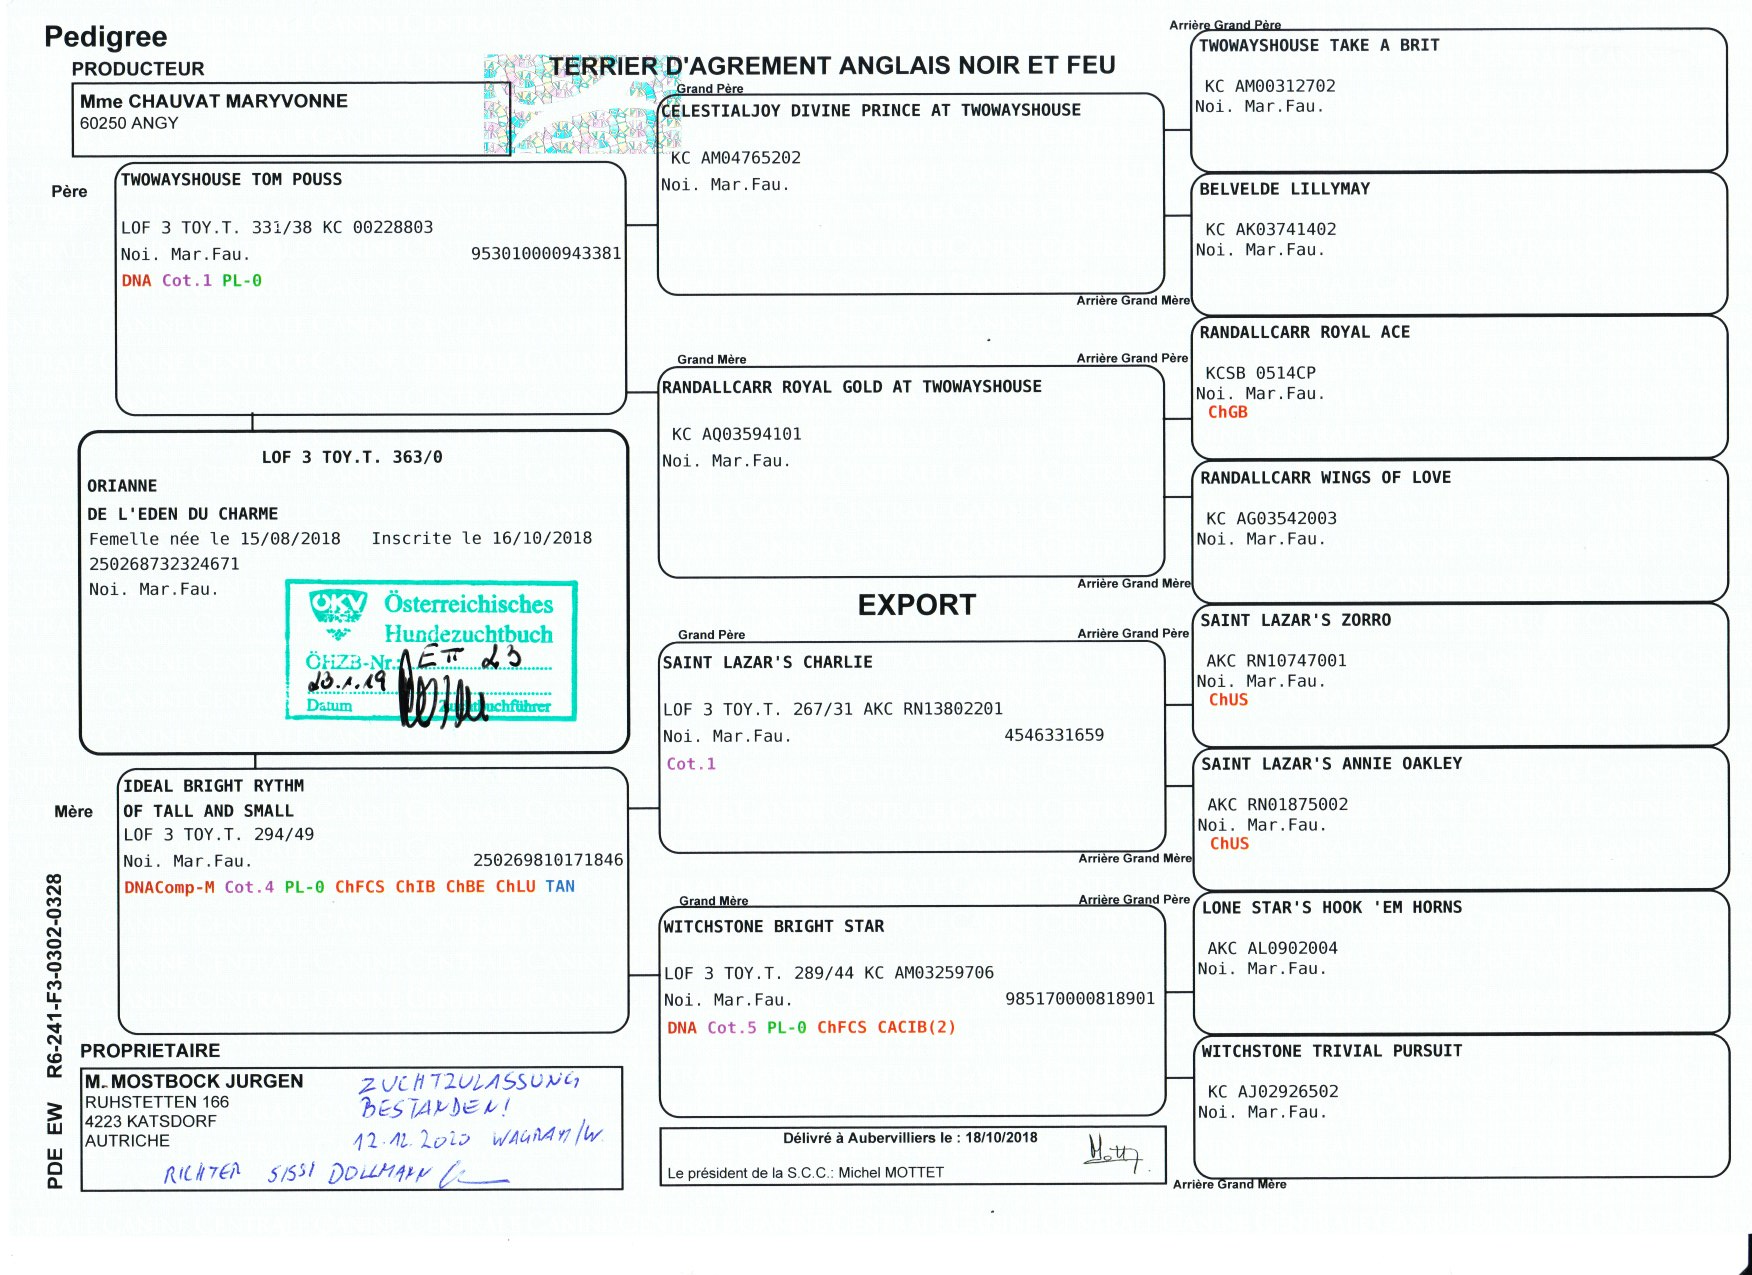 Pedigree
PRODUCTEUR
Mme CHAUVAT MARYVONNE
60250 ANGY
TERRIER D'AGREMENT ANGLAIS NOIR ET FEU
Père
TWOWAYSHOUSE TOM POUSS
LOF 3 TOY.T. 331/38 KC 00228803
Noi. Mar.Fau. 953010000943381
DNA Cot.1 PL-0
LOF 3 TOY.T. 363/0
ORIANNE
DE L'EDEN DU CHARME
Femelle née le 15/08/2018 Inscrite le 16/10/2018
250268732324671
Noi. Mar.Fau.
ÖKV Österreichisches
Hundezuchtbuch
ÖHZB-Nr.: ETT 23
23.1.19
Datum Zuchtbuchführer
Mère
IDEAL BRIGHT RYTHM
OF TALL AND SMALL
LOF 3 TOY.T. 294/49
Noi. Mar.Fau. 250269810171846
DNAComp-M Cot.4 PL-0 ChFCS ChIB ChBE ChLU TAN
PROPRIETAIRE
M. MOSTBOCK JURGEN
RUHSTETTEN 166
4223 KATSDORF
AUTRICHE
ZUCHTZULASSUNG
BESTANDEN!
12.12.2020 WAGRAM/W.
RICHTER SISSI DOLLMANN
PDE EW R6-241-F3-0302-0328
Grand Père
CELESTIALJOY DIVINE PRINCE AT TWOWAYSHOUSE
KC AM04765202
Noi. Mar.Fau.
Grand Mère
RANDALLCARR ROYAL GOLD AT TWOWAYSHOUSE
KC AQ03594101
Noi. Mar.Fau.
EXPORT
Grand Père
SAINT LAZAR'S CHARLIE
LOF 3 TOY.T. 267/31 AKC RN13802201
Noi. Mar.Fau. 4546331659
Cot.1
Grand Mère
WITCHSTONE BRIGHT STAR
LOF 3 TOY.T. 289/44 KC AM03259706
Noi. Mar.Fau. 985170000818901
DNA Cot.5 PL-0 ChFCS CACIB(2)
Délivré à Aubervilliers le : 18/10/2018
Le président de la S.C.C.: Michel MOTTET
Arrière Grand Père
TWOWAYSHOUSE TAKE A BRIT
KC AM00312702
Noi. Mar.Fau.
BELVELDE LILLYMAY
KC AK03741402
Noi. Mar.Fau.
Arrière Grand Mère
Arrière Grand Père
RANDALLCARR ROYAL ACE
KCSB 0514CP
Noi. Mar.Fau.
ChGB
RANDALLCARR WINGS OF LOVE
KC AG03542003
Noi. Mar.Fau.
Arrière Grand Mère
Arrière Grand Père
SAINT LAZAR'S ZORRO
AKC RN10747001
Noi. Mar.Fau.
ChUS
SAINT LAZAR'S ANNIE OAKLEY
AKC RN01875002
Noi. Mar.Fau.
ChUS
Arrière Grand Mère
Arrière Grand Père
LONE STAR'S HOOK 'EM HORNS
AKC AL0902004
Noi. Mar.Fau.
WITCHSTONE TRIVIAL PURSUIT
KC AJ02926502
Noi. Mar.Fau.
Arrière Grand Mère